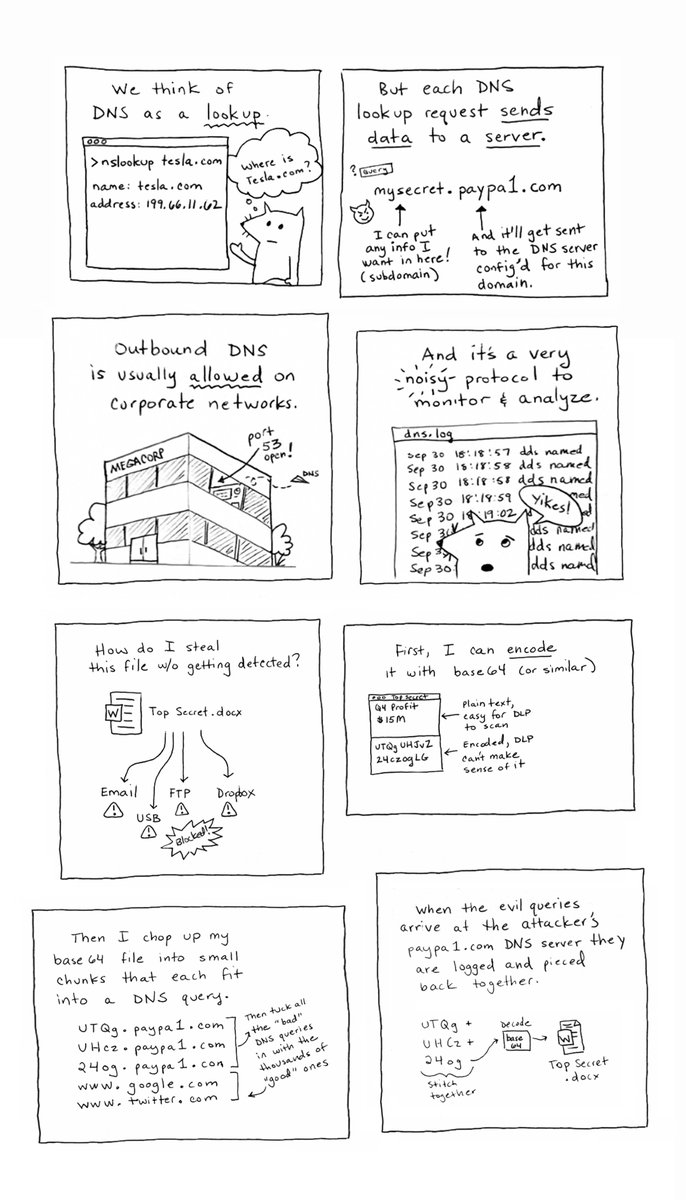 We think of
DNS as a lookup.
>nslookup tesla.com
name: tesla.com
address: 199.66.11.62
Where is
Tesla.com?
But each DNS
lookup request sends
data to a server.
? query
mysecret.paypa1.com
I can put
any info I
want in here!
(subdomain)
And it'll get sent
to the DNS server
config'd for this
domain.
Outbound DNS
is usually allowed on
corporate networks.
port
53
open!
MEGACORP
DNS
And it's a very
noisy protocol to
monitor & analyze.
dns.log
Sep 30 18:18:57 dds named
Sep 30 18:18:58 dds named
Sep 30 18:18:58 dds named
Sep 30 18:18:59 named
Sep 30 18:19:02 named
Sep 30 dds named
Sep 30 dds named
Sep 30 dds named
Yikes!
How do I steal
this file w/o getting detected?
W Top Secret.docx
Email
USB
FTP
Dropbox
Blocked!
First, I can encode
it with base64 (or similar)
Top Secret
Q4 Profit
$15M
Plain text,
easy for DLP
to scan
UTQgUHJvZ
24czogLG
Encoded, DLP
can't make
sense of it
Then I chop up my
base64 file into small
chunks that each fit
into a DNS query.
UTQg.paypa1.com
UHCz.paypa1.com
24og.paypa1.con
www.google.com
www.twitter.com
Then tuck all
the "bad"
DNS queries
in with the
thousands of
"good" ones
When the evil queries
arrive at the attacker's
paypa1.com DNS server they
are logged and pieced
back together.
UTQg +
UHCz +
24og
Stitch
together
Decode
base
64
W
Top Secret
.docx